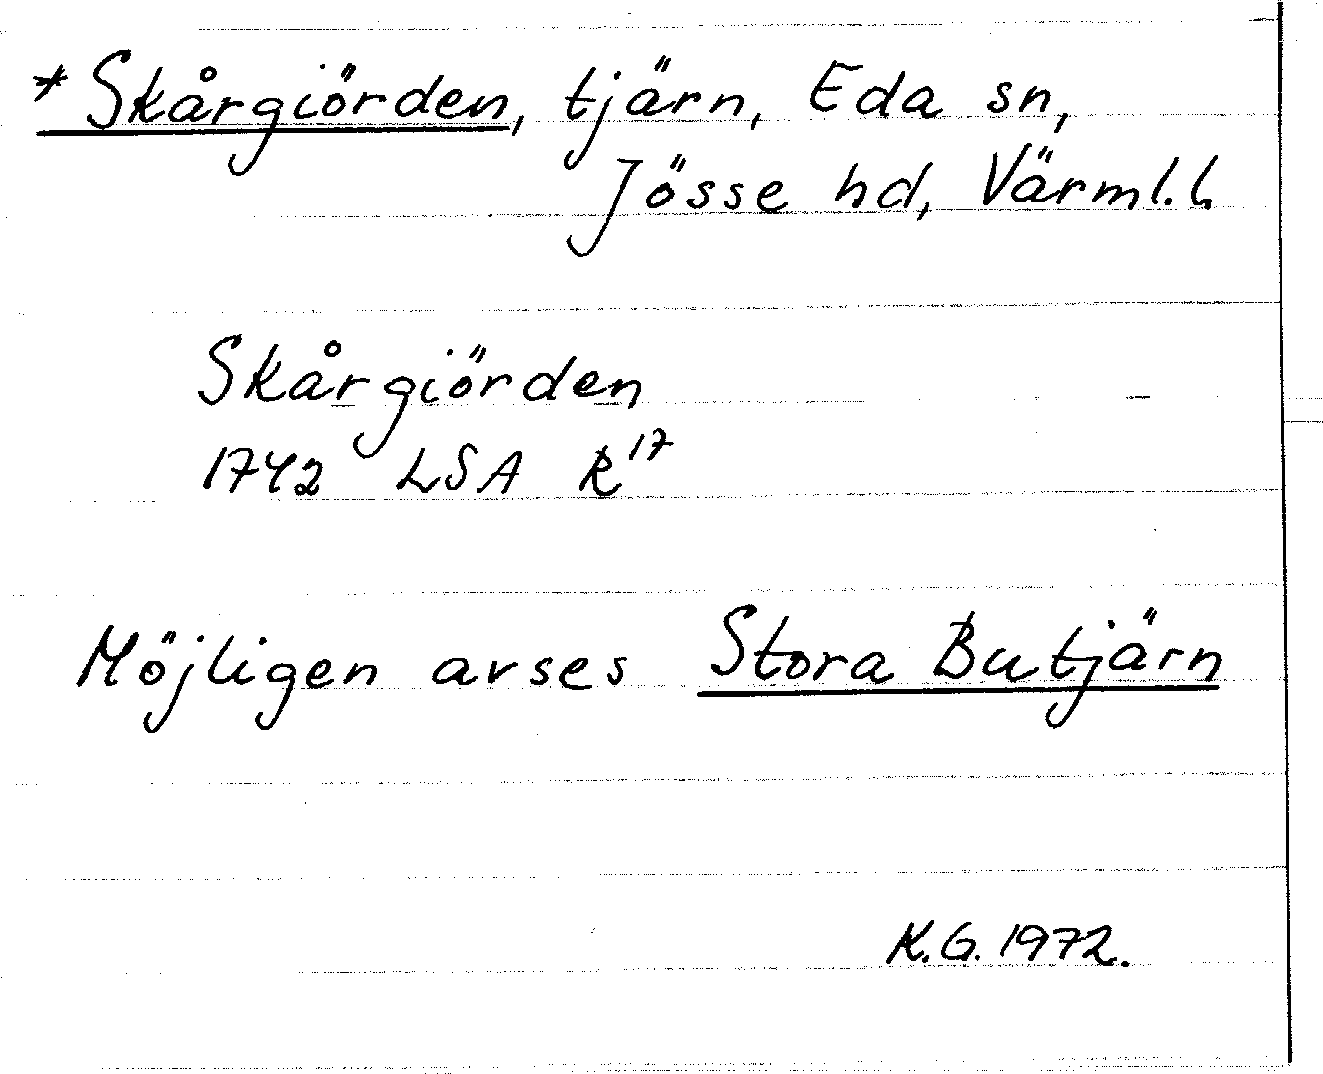 *Skårgiörden, tjärn, Eda sn,
Jösse hd, Värml.l.
Skårgiörden
1742 LSA R17
Möjligen avses Stora Butjärn
K.G. 1972.